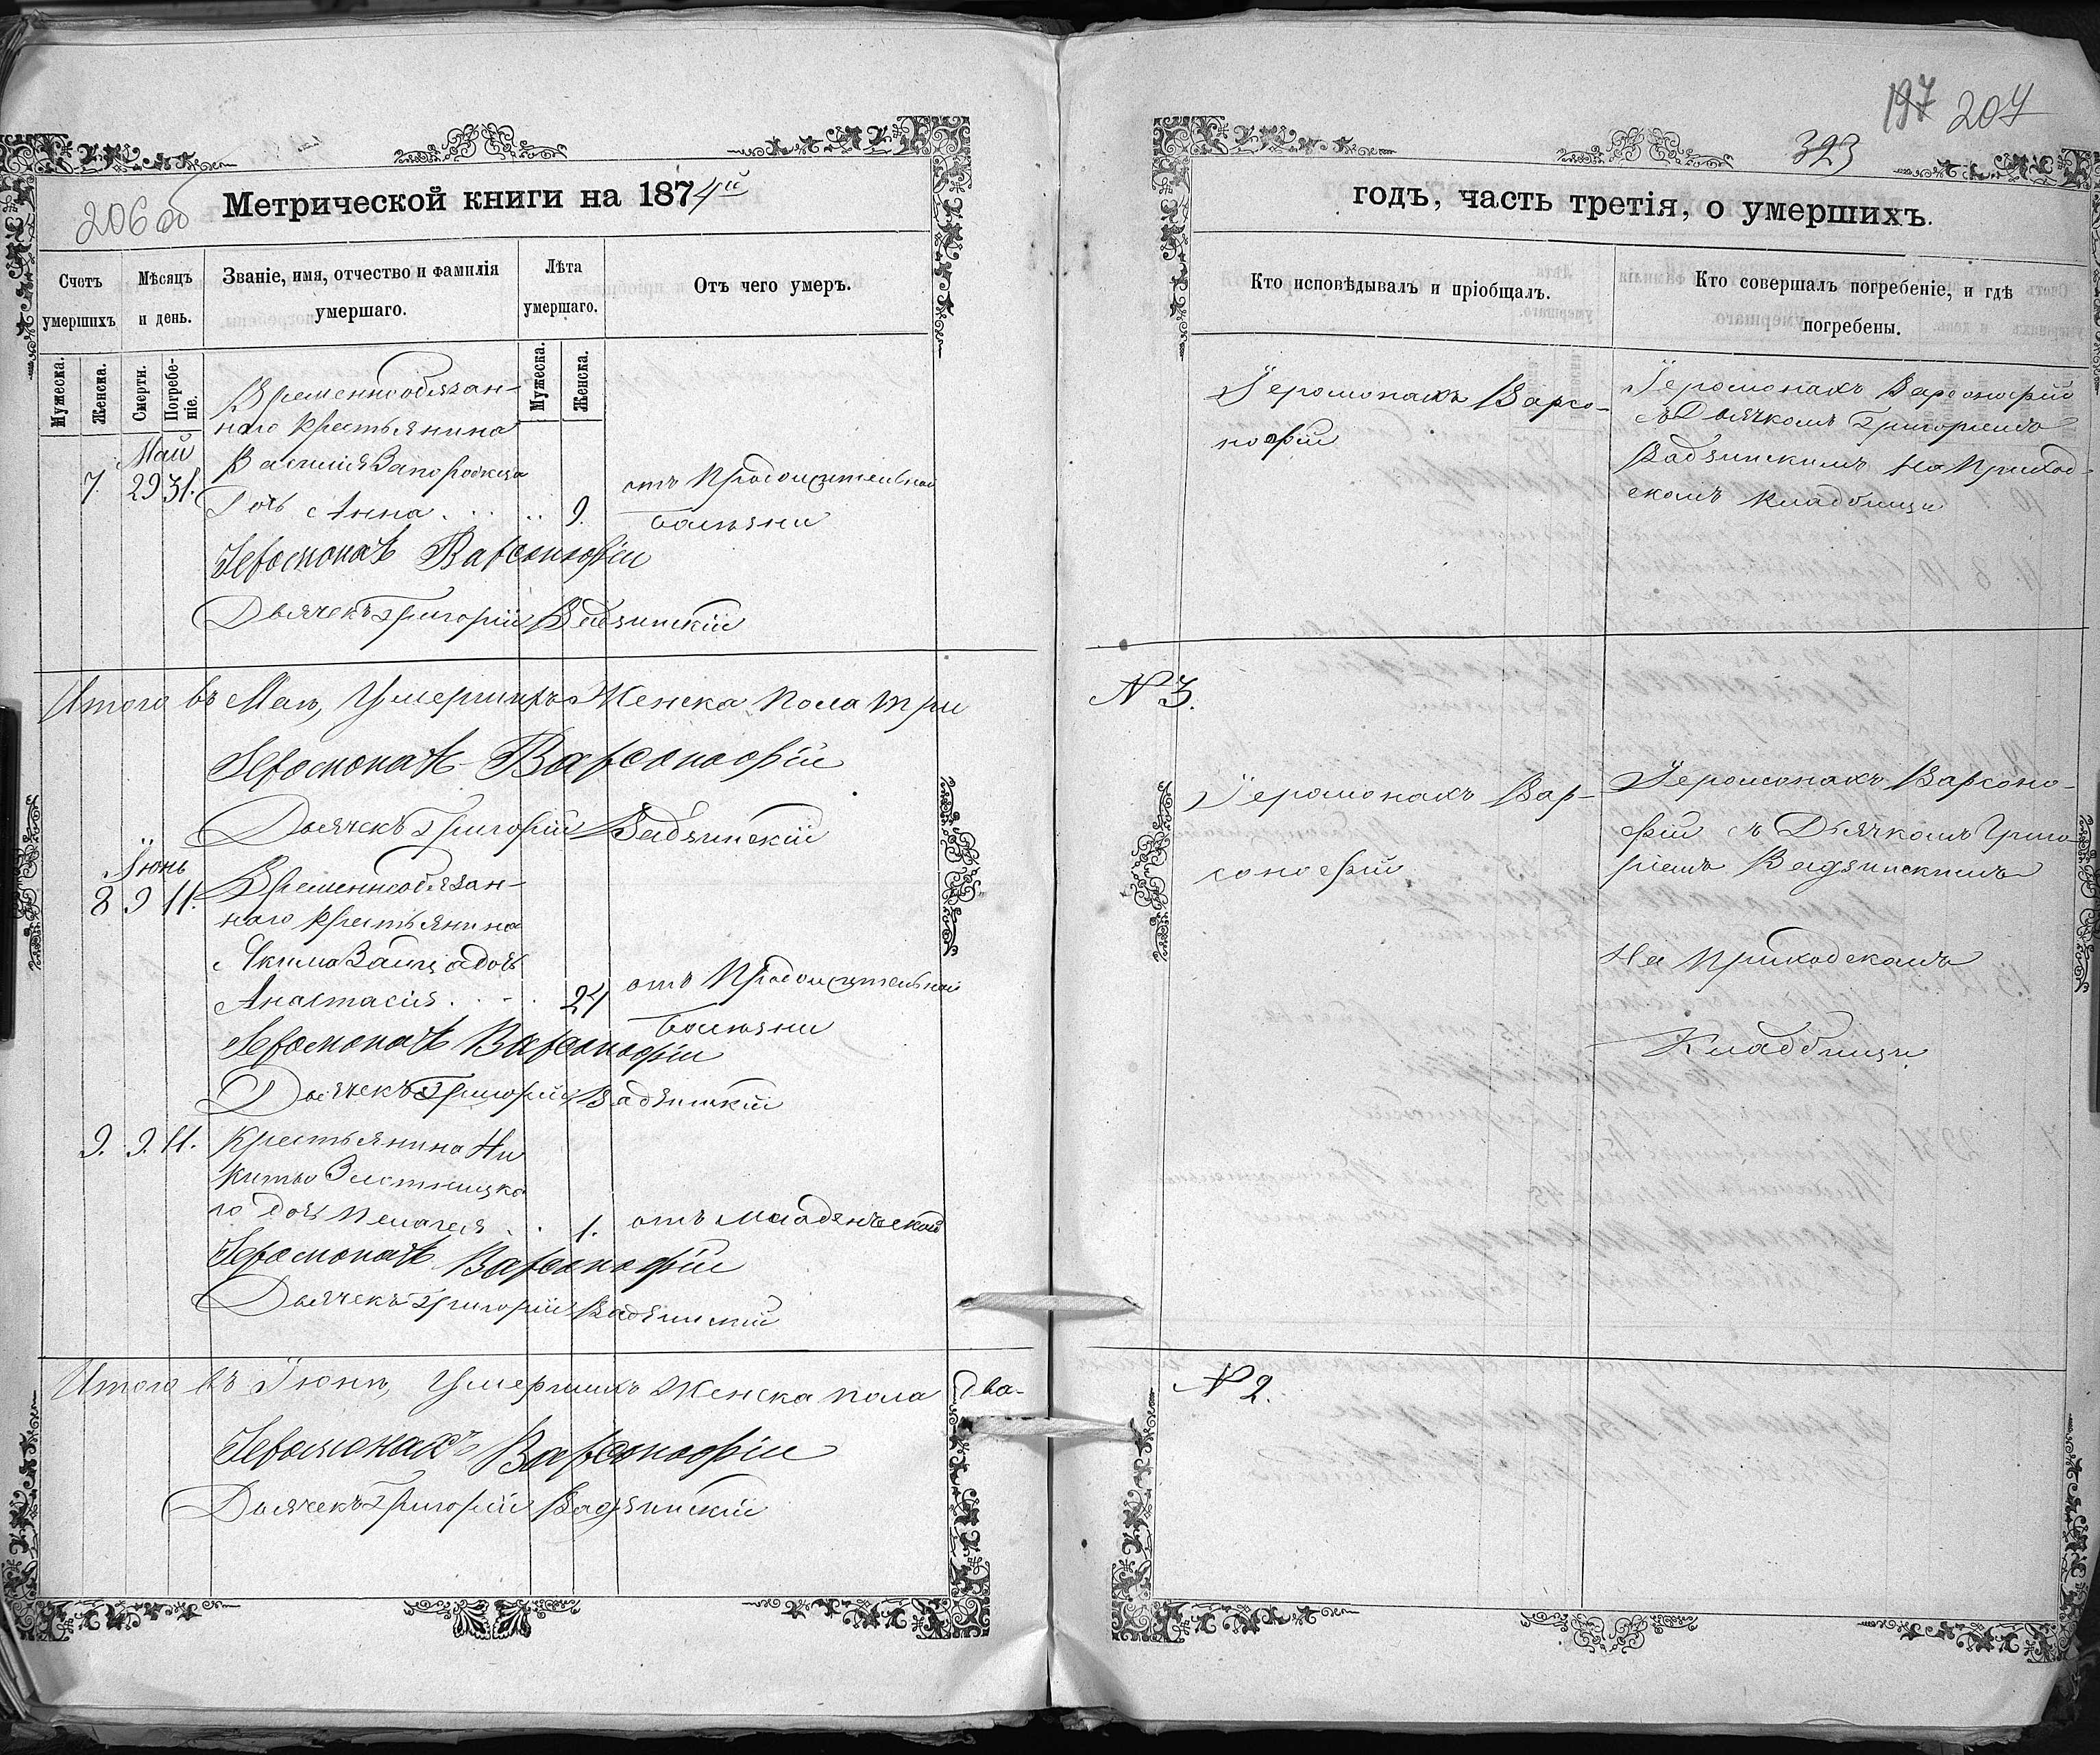 206 об
Метрической книги на 1874й
Счетъ умершихъ
Мѣсяцъ и день.
Званіе, имя, отчество и фамилія умершаго.
Лѣта умершаго.
Отъ чего умеръ.
Мужеска.
Женска.
Смерти.
Погребеніе.
Мужеска.
Женска.
Май
7. 29 31.
Временнообязан-
наго крестьянина
Василія Запорожца
дочь Анна . . . . 9.
отъ продолжительной
болѣзни
Іеромонахъ Варсонофій
Дьячекъ Григорій Вадзинскій
Итого въ Маѣ, Умершихъ Женска пола три
Іеромонахъ Варсонофій
Дьячекъ Григорій Вадзинскій
Іюнь
8 9 11.
Временнообязан-
наго крестьянина
Якима дочь
Анастасія . . . 24
отъ продолжительной
болѣзни
Іеромонахъ Варсонофій
Дьячекъ Григорій Вадзинскій
9. 9. 11.
Крестьянина Ни
киты
го дочь Пелагея . . 1.
отъ младенческой
Іеромонахъ Варсонофій
Дьячекъ Григорій Вадзинскій
Итого въ Іюнѣ, Умершихъ Женска пола два-
Іеромонахъ Варсонофій
Дьячекъ Григорій Вадзинскій
197 207
323
годъ, часть третія, о умершихъ.
Кто исповѣдывалъ и пріобщалъ.
Кто совершалъ погребеніе, и гдѣ
погребены.
Іеромонахъ Варсо-
нофій
Іеромонахъ Варсонофій
съ Дьячкомъ Григоріемъ
Вадзинскимъ на приход-
скомъ кладбищи
№ 3.
Іеромонахъ Вар-
сонофій
Іеромонахъ Варсоно-
фій съ Дьячкомъ Григо-
ріемъ Вадзинскимъ
На приходскомъ
Кладбищи
№ 2.